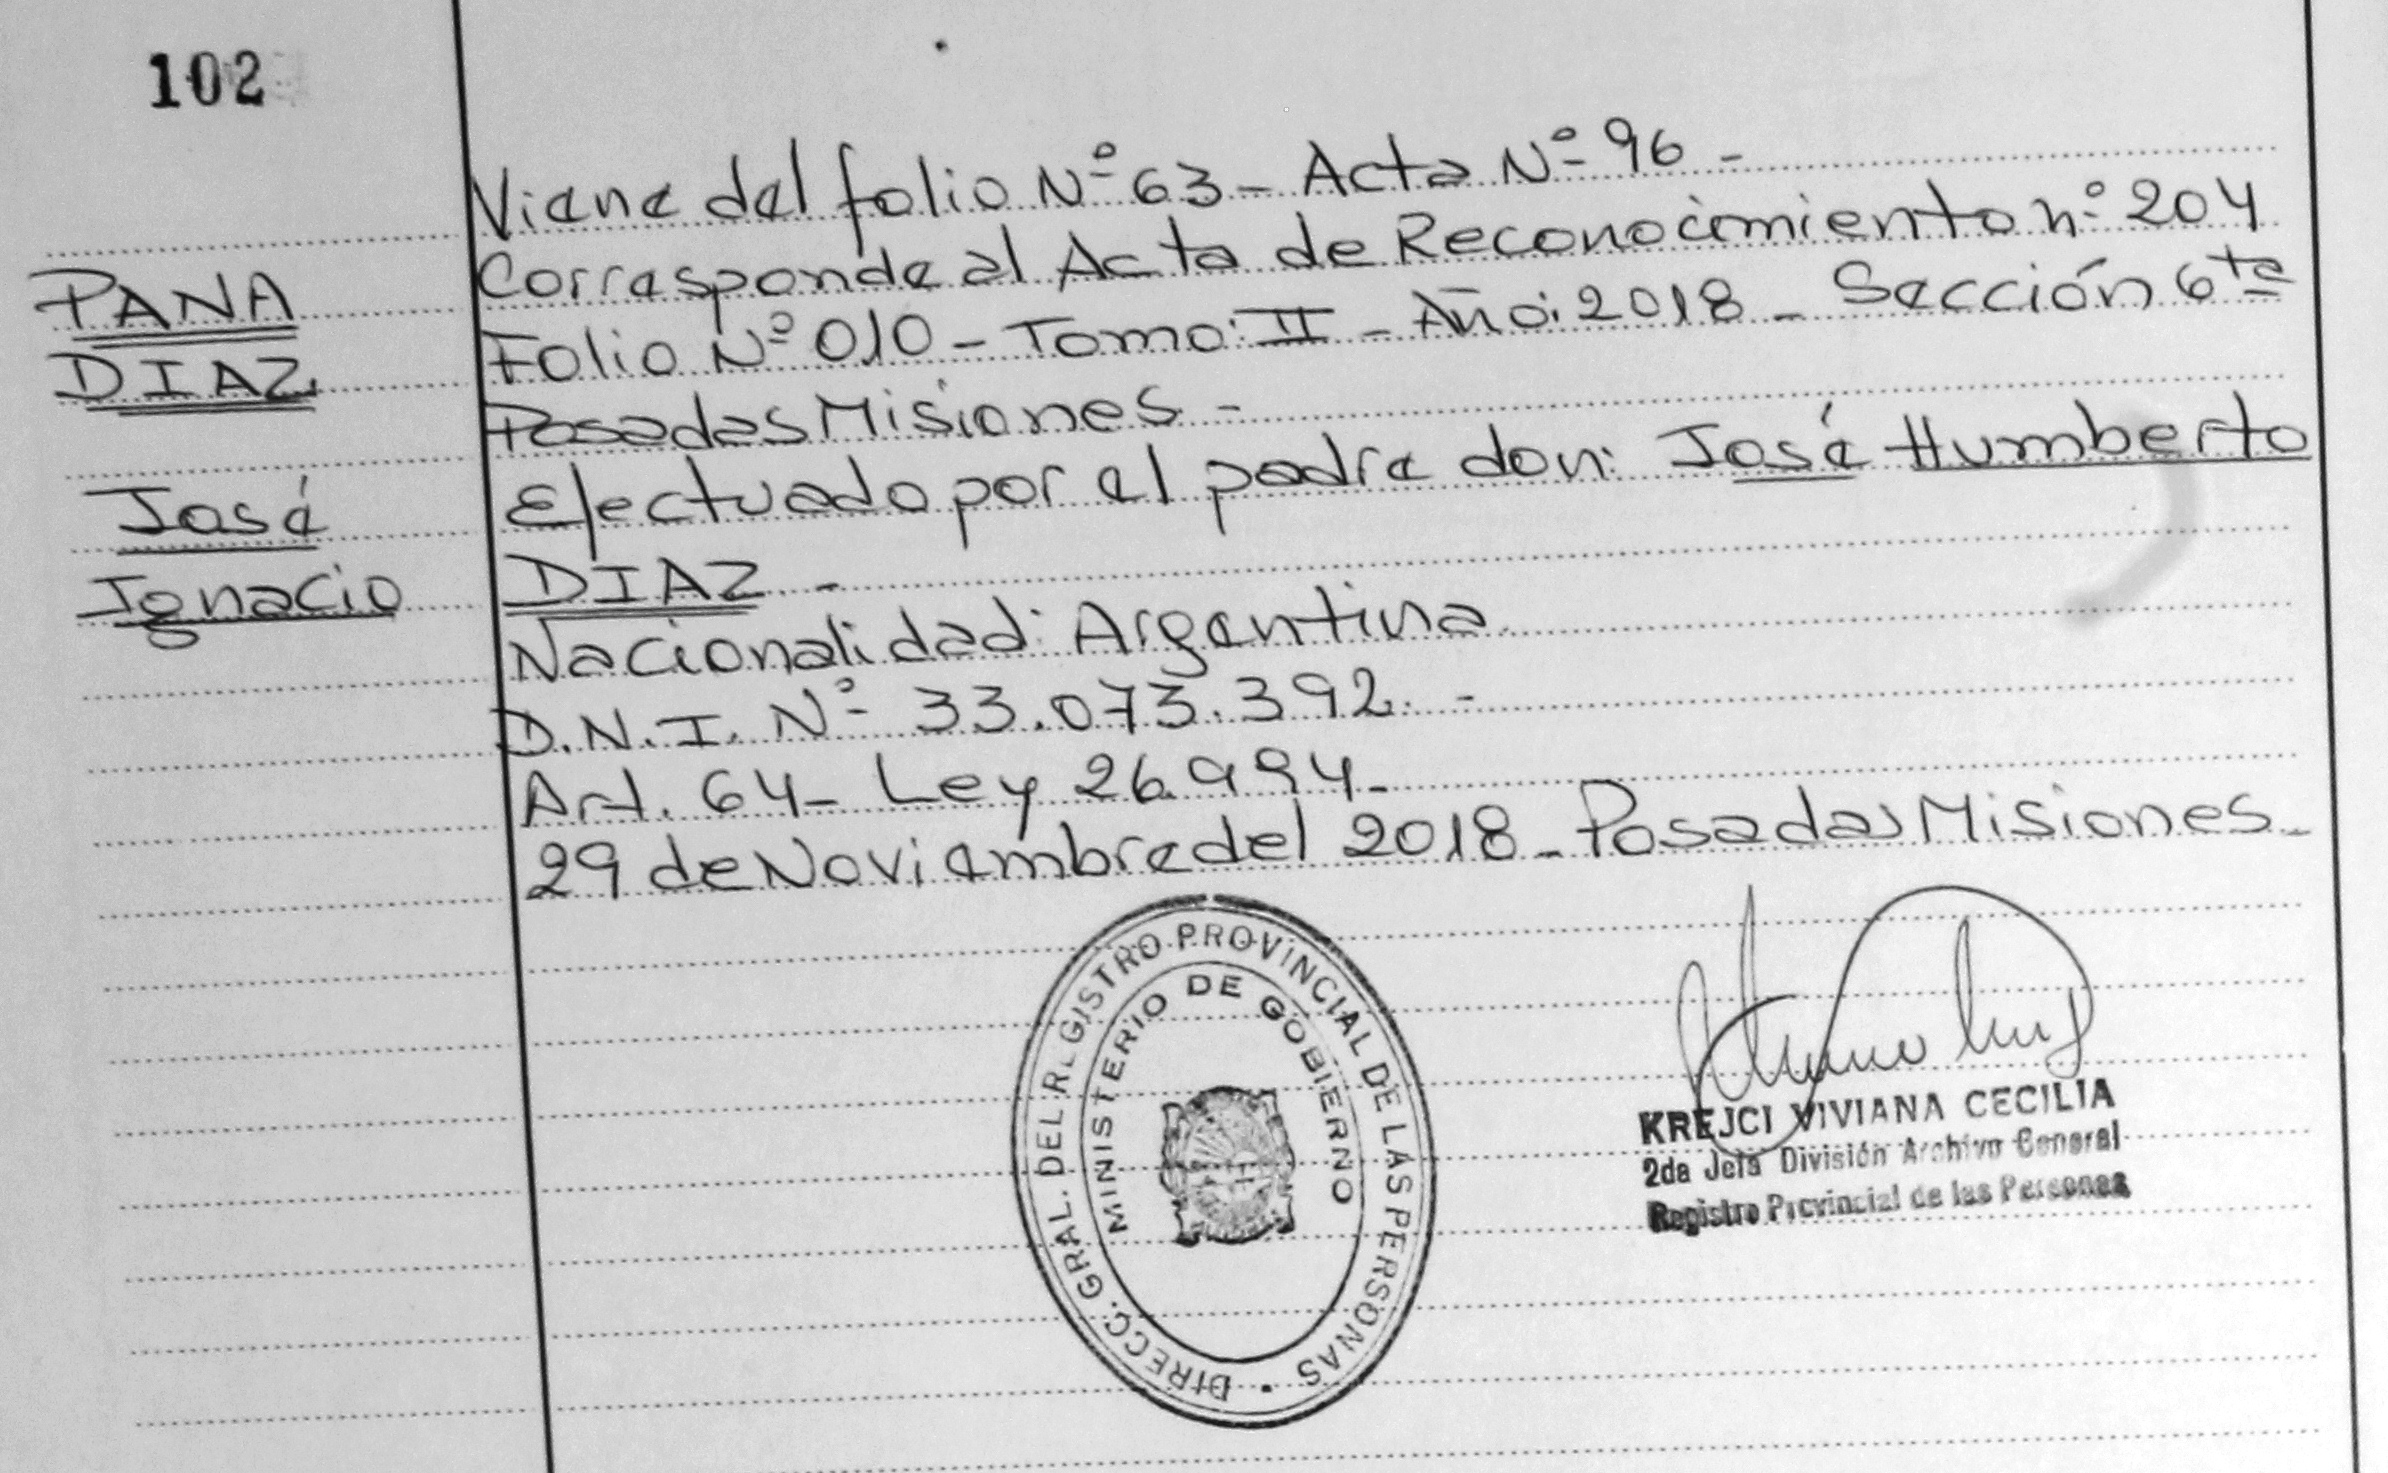 102
PANA
DIAZ
José
Ignacio
Viene del folio Nº 63 - Acta Nº 96 -
Corresponde al Acta de Reconocimiento nº 204
Folio Nº 010 - Tomo: II - Año: 2018 - Sección 6ta
Posadas Misiones -
Efectuado por el padre don: José Humberto
DIAZ -
Nacionalidad: Argentina
D.N.I. Nº 33.073.392. -
Art. 64 - Ley 26.994 -
29 de Noviembre del 2018 - Posadas Misiones -
DIRECC. GRAL. DEL REGISTRO PROVINCIAL DE LAS PERSONAS
MINISTERIO DE GOBIERNO
KREJCI VIVIANA CECILIA
2da Jefa División Archivo General
Registro Provincial de las Personas